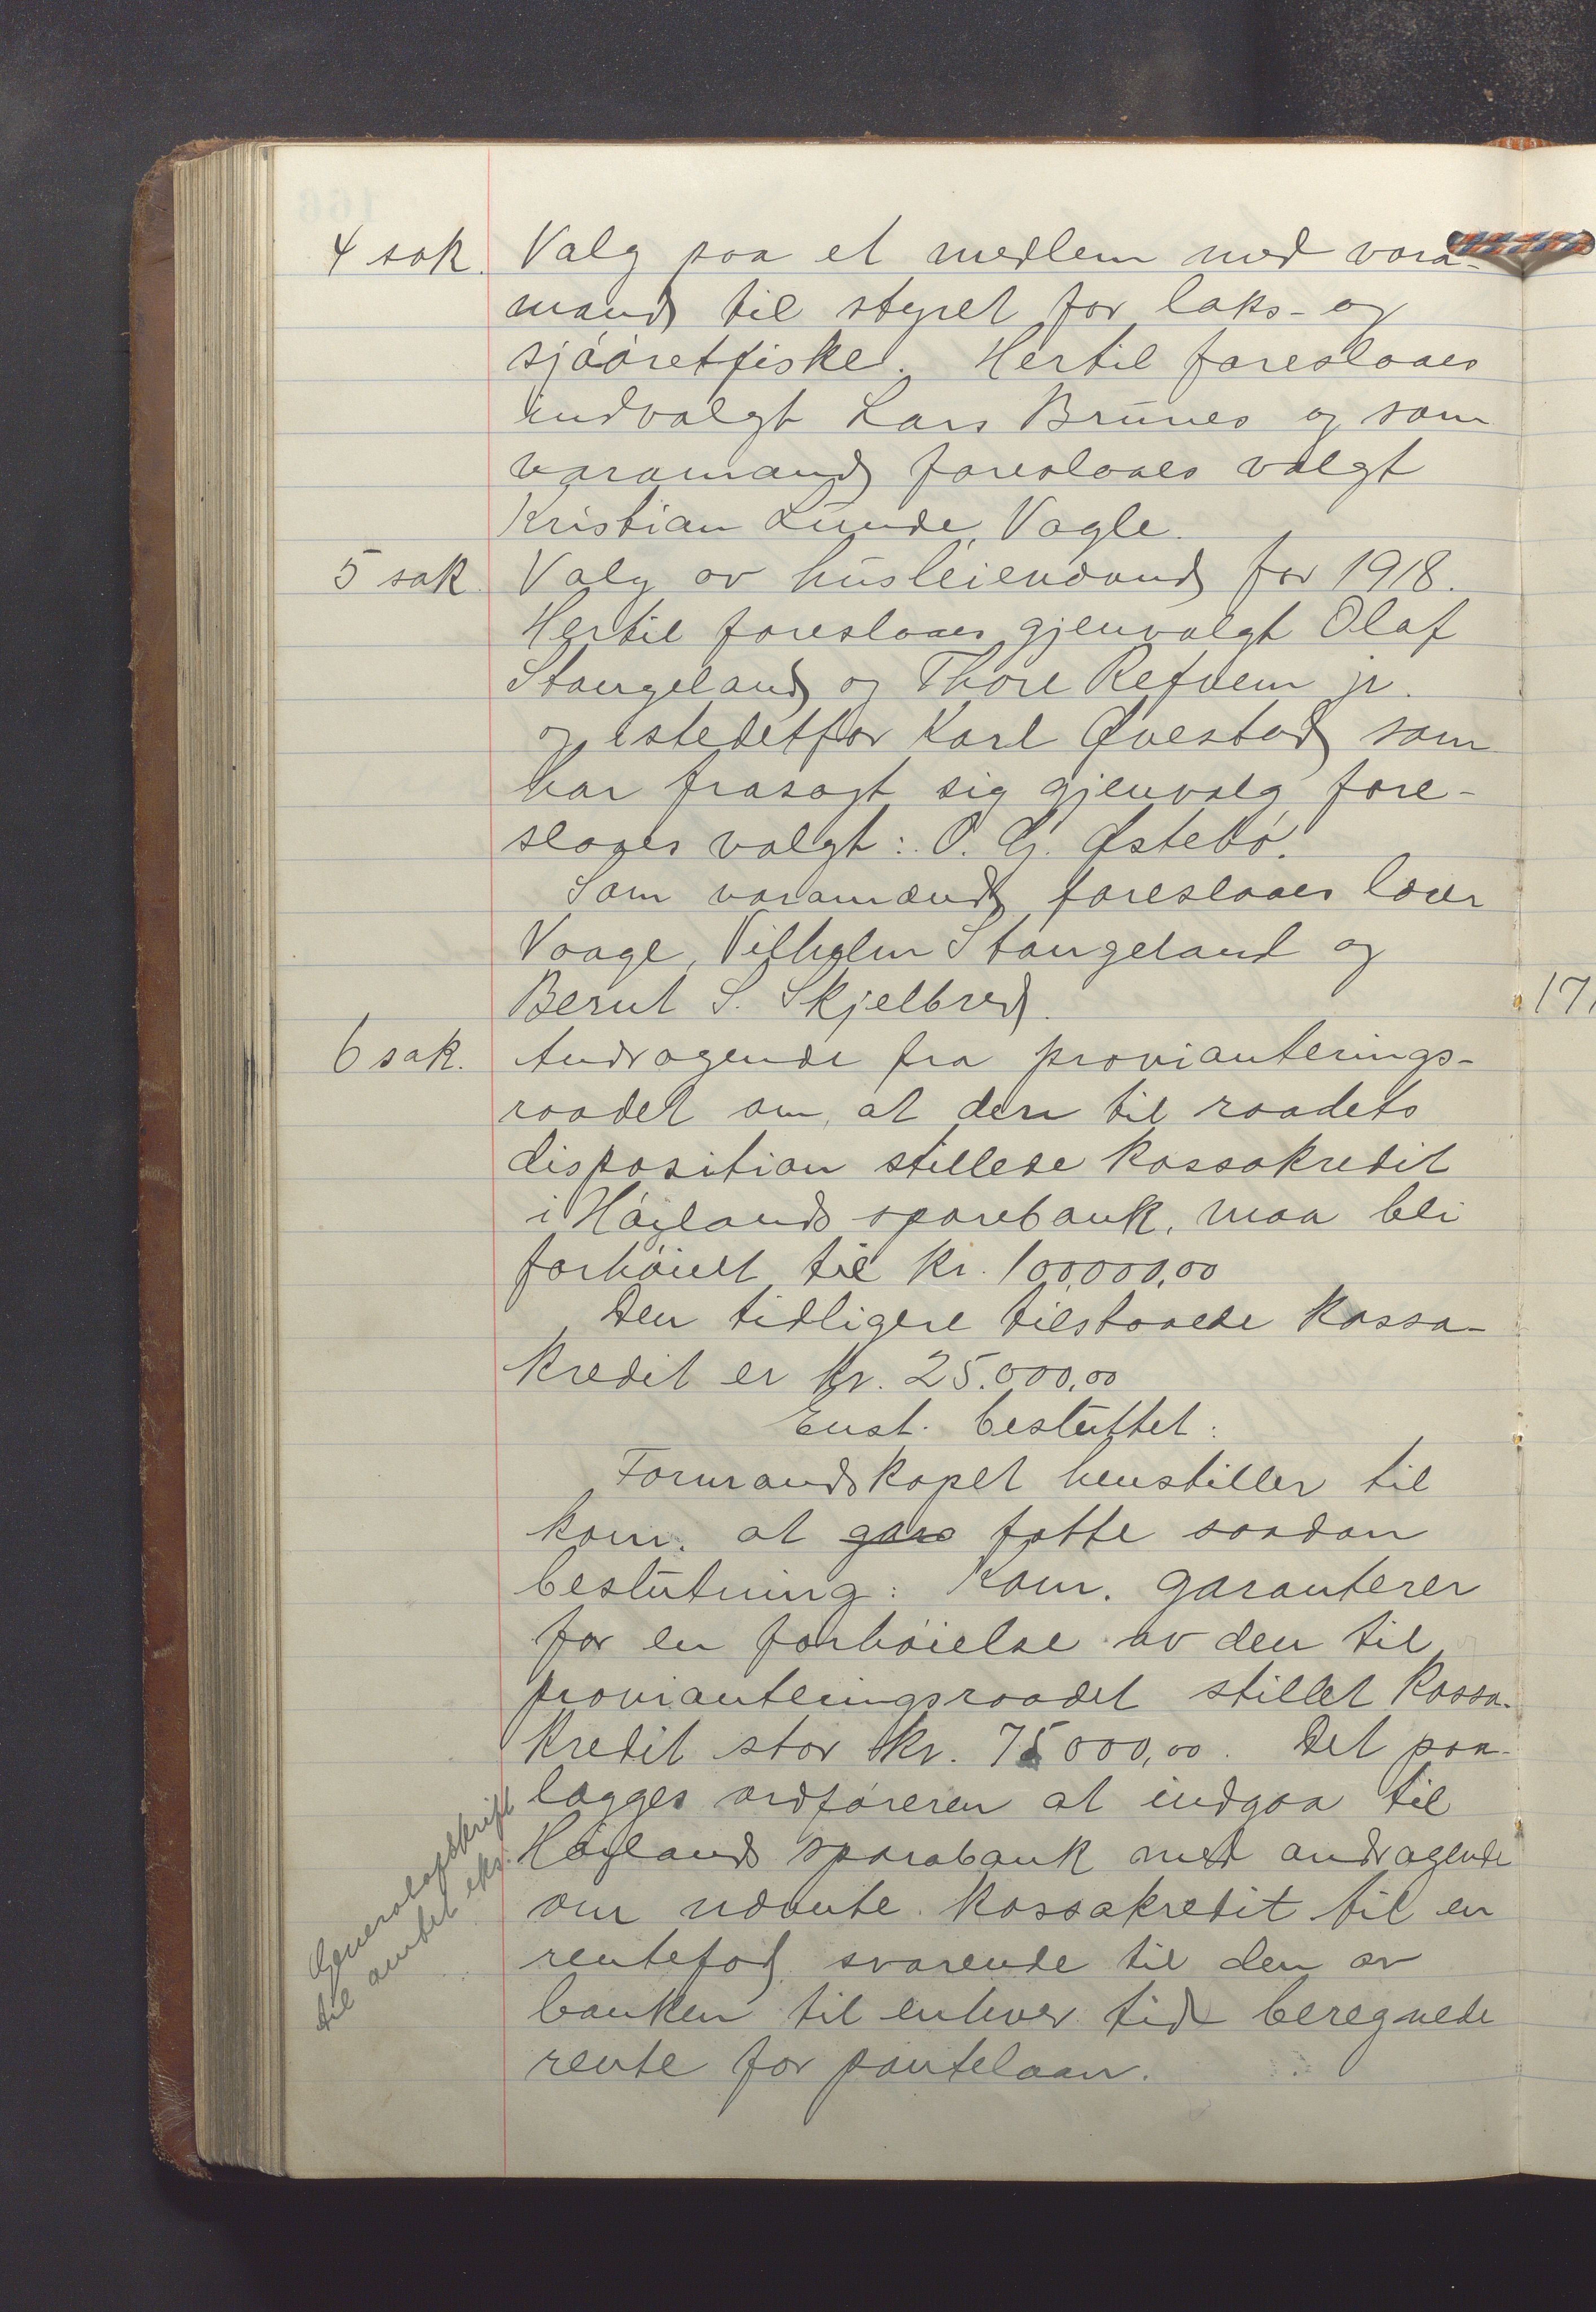 4 sak. Valg paa et medlem med vara-
mand til styret for laks- og
sjøøretfiske. Hertil foreslaaes
indvalgt Lars Brunes og som
varamand foreslaaes valgt
Kristian Lunde, Vagle.
5 sak. Valg av husleienævnd for 1918.
Hertil foreslaaes gjenvalgt Olaf
Stangeland og Thore Refvem jr.
og istedetfor Karl Qvestad som
har frasagt sig gjenvalg fore-
slaaes valgt: O. G. Østebø.
Som varamænd foreslaaes lærer
Vaage, Vilhelm Stangeland og
Bernt S. Skjelbred.
6 sak. Andragende fra provianterings-
raadet om, at den til raadets
disposition stillede kassakredit
i Høylands sparebank, maa bli
forhøiet til kr. 100,000,00
Den tidligere tilstaaede kassa-
kredit er kr. 25.000,00
Enst. besluttet:
Formandskapet henstiller til
kom. at fatte saadan
beslutning: Kom. garanterer
for en forhøielse av den til
provianteringsraadet stillet kassa-
kredit stor kr. 75000,00. Det paa-
lægges ordføreren at indgaa til
Høylands sparebank med andragende
om nævnte kassakredit til en
rentefod svarende til den av
banken til enhver tid beregnede
rente for pantelaan.
Generalafskrift
til amtet eks.
17